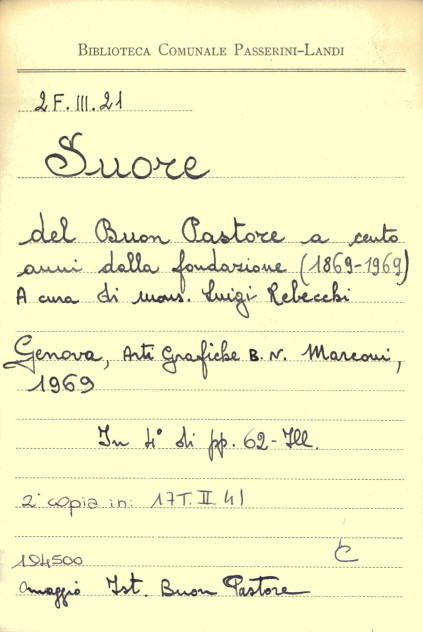 BIBLIOTECA COMUNALE PASSERINI-LANDI
2F.III.21
Suore
del Buon Pastore a cento
anni dalla fondazione (1869-1969)
A cura di mons. Luigi Rebecchi
Genova, Arti Grafiche B. N. Marconi,
1969
In 4° di pp. 62-Ill.
2ª copia in: 17T.II.41
194500
C
omaggio Ist. Buon Pastore